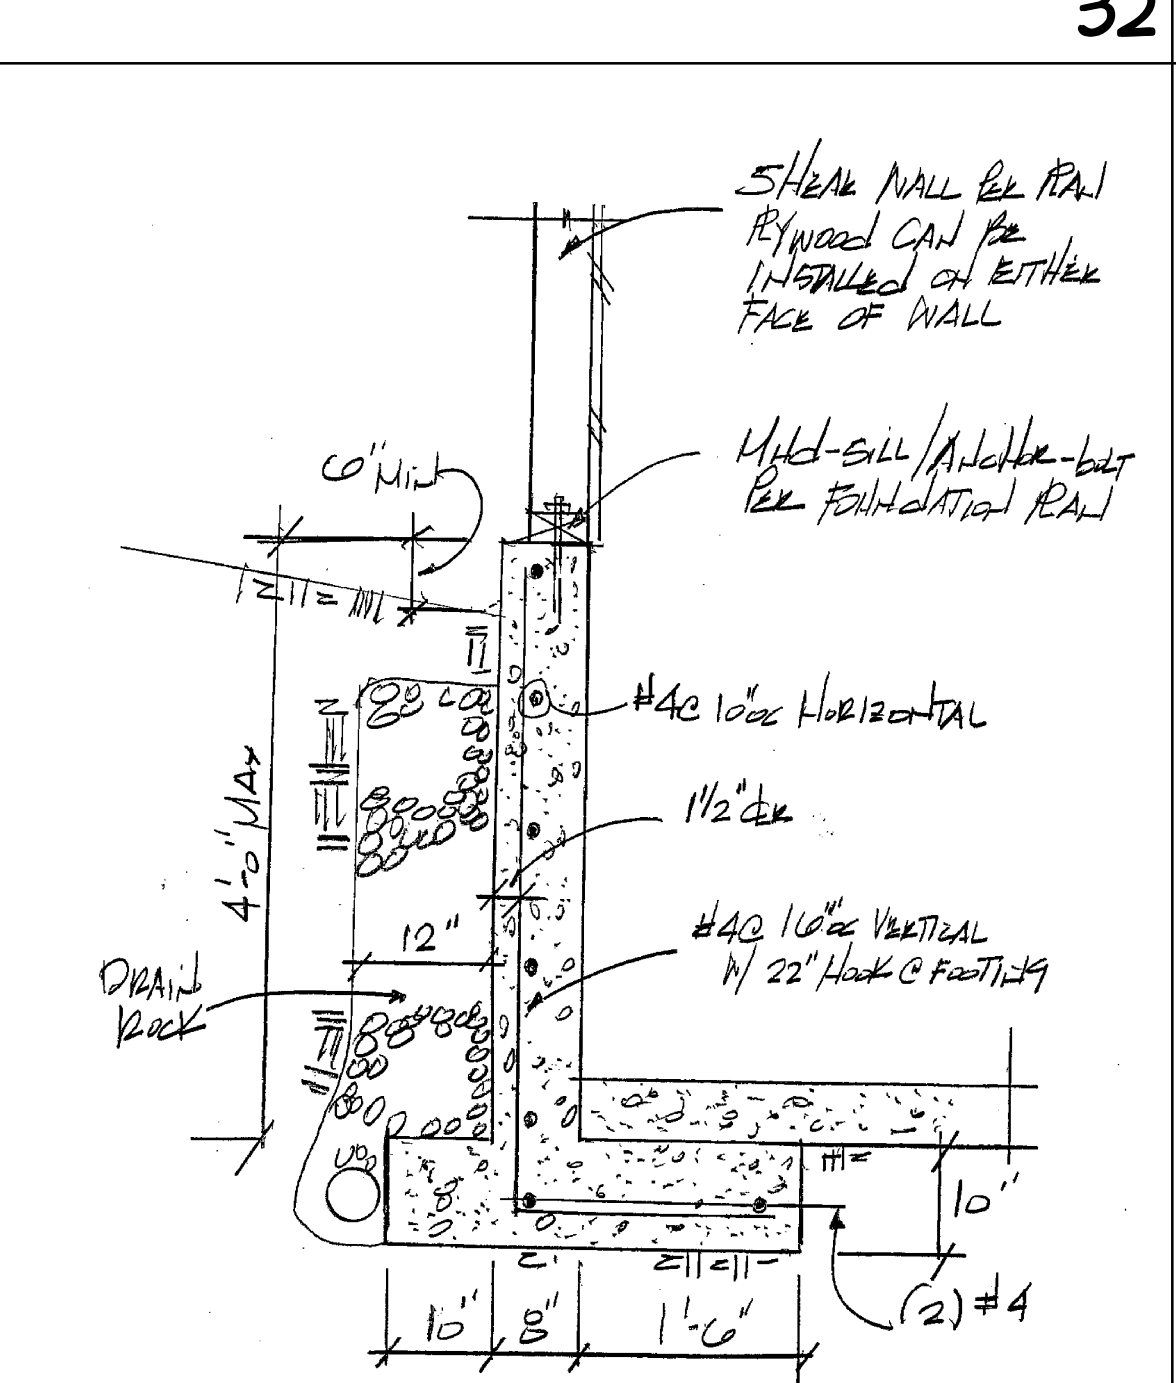 32
SHEAR WALL PER PLAN
PLYWOOD CAN BE
INSTALLED ON EITHER
FACE OF WALL
MUD-SILL/ANCHOR-BOLT
PER FOUNDATION PLAN
6" MIN
#4@ 10"OC HORIZONTAL
4'-0" MAX
1 1/2" CLR
12"
#4@ 16"OC VERTICAL
W/ 22" HOOK @ FOOTING
DRAIN
ROCK
10"
(2) #4
10"
8"
1'-6"